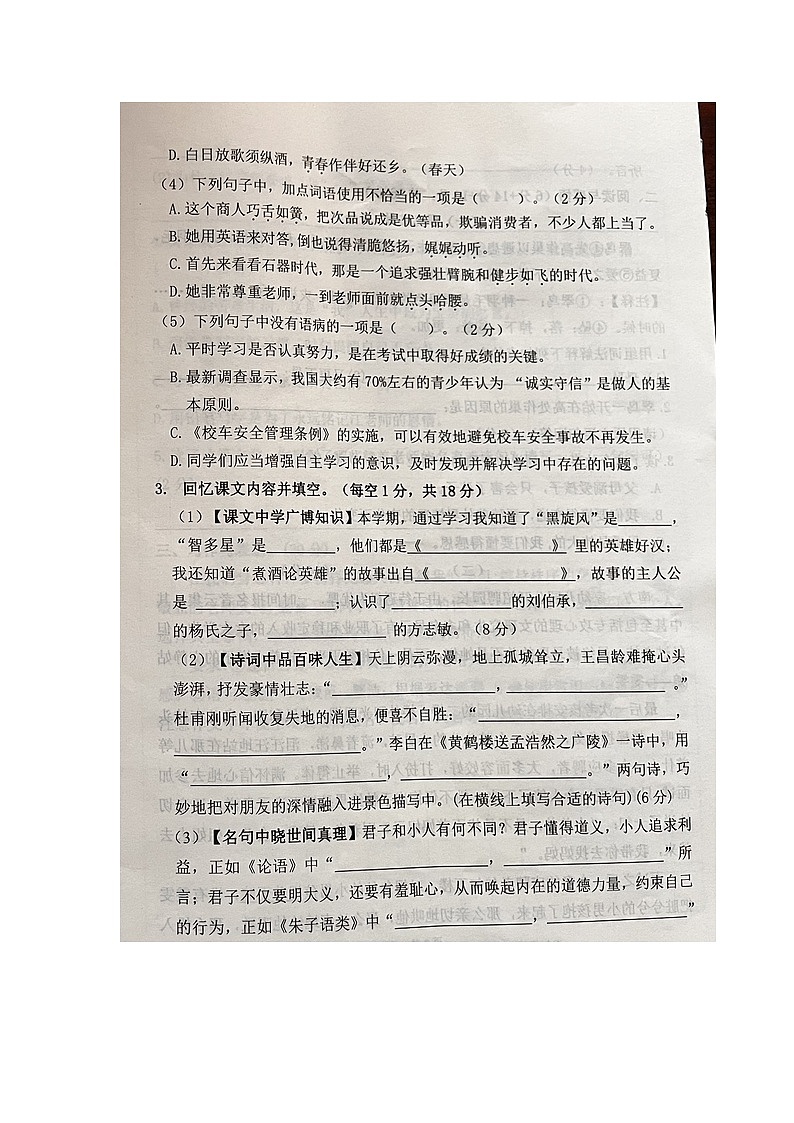 D. 白日放歌须纵酒，青春作伴好还乡。（春天）
（4）下列句子中，加点词语使用不恰当的一项是（    ）。（2 分）
A. 这个商人巧舌如簧，把次品说成是优等品，欺骗消费者，不少人都上当了。
B. 她用英语来对答,倒也说得清脆悠扬，娓娓动听。
C. 首先来看看石器时代，那是一个追求强壮臂腕和健步如飞的时代。
D. 她非常尊重老师，一到老师面前就点头哈腰。
（5）下列句子中没有语病的一项是（    ）。（2 分）
A. 平时学习是否认真努力，是在考试中取得好成绩的关键。
B. 最新调查显示，我国大约有 70%左右的青少年认为 “诚实守信”是做人的基
本原则。
C. 《校车安全管理条例》的实施，可以有效地避免校车安全事故不再发生。
D. 同学们应当增强自主学习的意识，及时发现并解决学习中存在的问题。
3. 回忆课文内容并填空。（每空 1 分，共 18 分）
（1）【课文中学广博知识】本学期，通过学习我知道了“黑旋风”是______，
“智多星”是________，他们都是《______________》 里的英雄好汉；
我还知道“煮酒论英雄”的故事出自《______________》，故事的主人公
是 ______________；认识了______________的刘伯承，____________
的杨氏之子，______________ 的方志敏。（8 分）
（2）【诗词中品百味人生】天上阴云弥漫，地上孤城耸立，王昌龄难掩心头
澎湃，抒发豪情壮志：“__________________，__________________ 。”
杜甫刚听闻收复失地的消息，便喜不自胜：“______________________，
____________________。” 李白在《黄鹤楼送孟浩然之广陵》一诗中，用
“____________________，____________________。” 两句诗，巧
妙地把对朋友的深情融入进景色描写中。(在横线上填写合适的诗句)(6 分)
（3）【名句中晓世间真理】君子和小人有何不同？君子懂得道义，小人追求利
益，正如《论语》中“__________________，__________________ ”所
言；君子不仅要明大义，还要有羞耻心，从而唤起内在的道德力量，约束自己
的行为，正如《朱子语类》中“________________，________________”